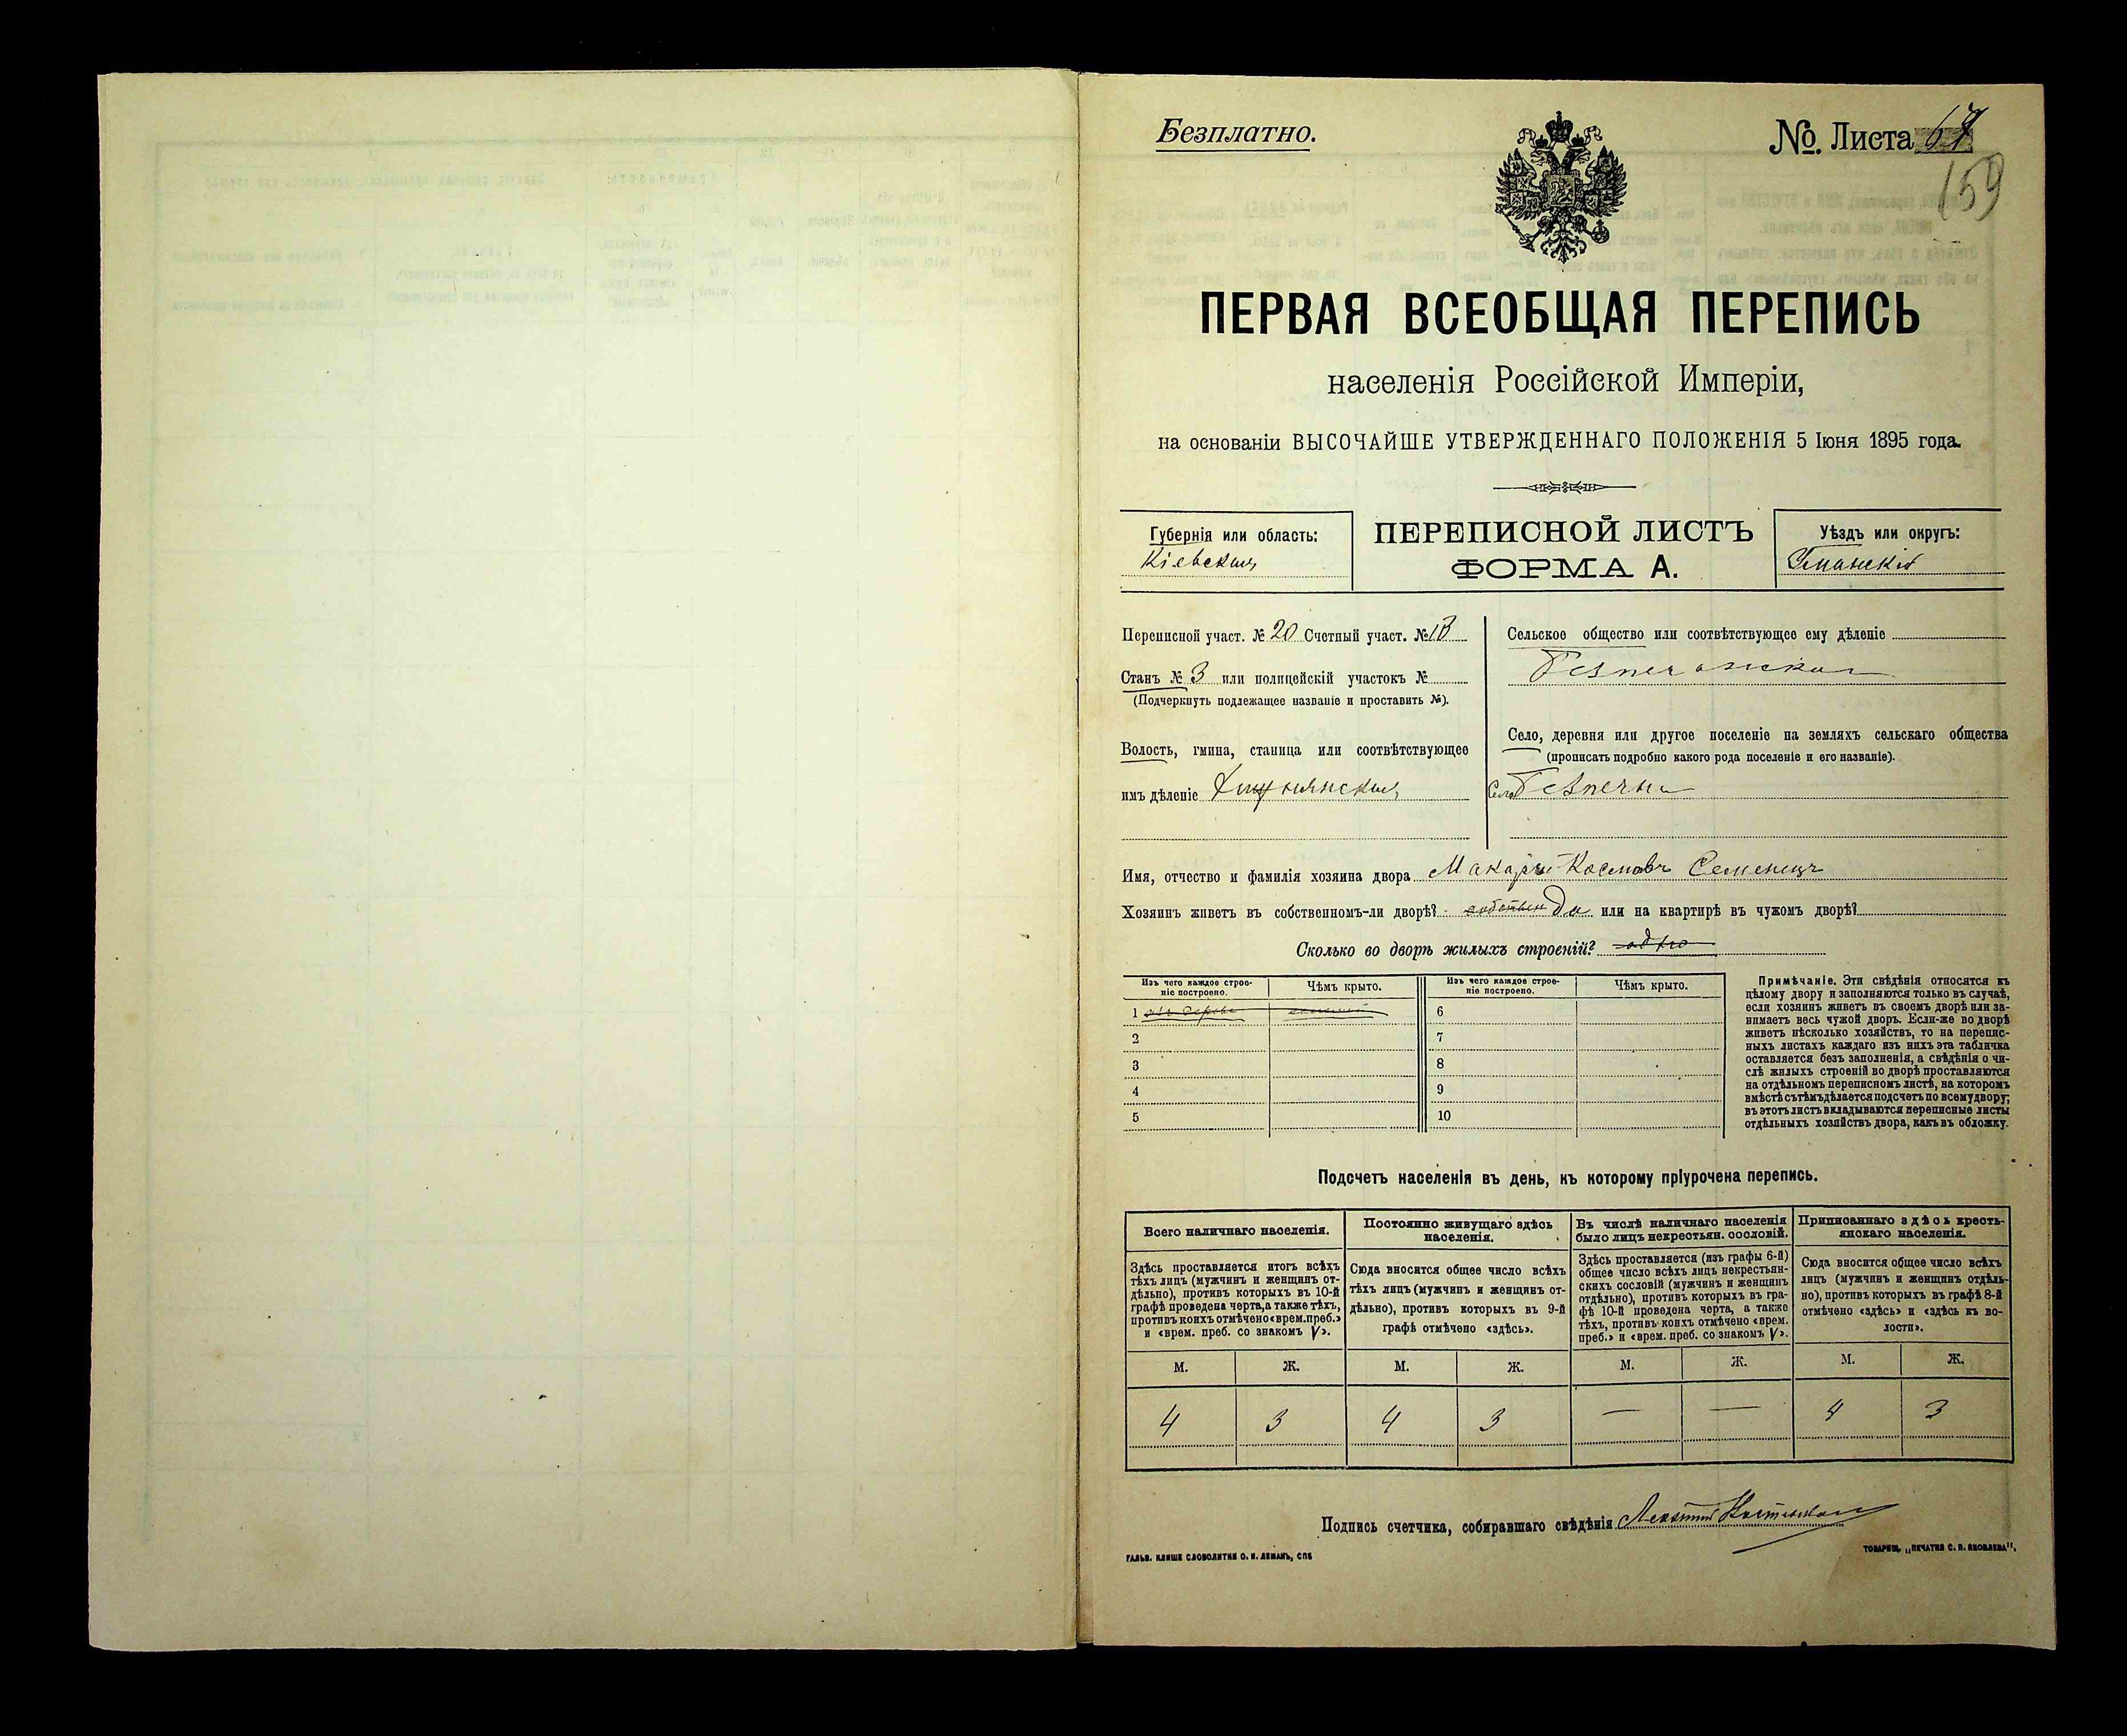 Безплатно.
№. Листа
159
ПЕРВАЯ ВСЕОБЩАЯ ПЕРЕПИСЬ
населенія Россійской Имперіи,
на основаніи ВЫСОЧАЙШЕ УТВЕРЖДЕННАГО ПОЛОЖЕНІЯ 5 Іюня 1895 года.
Губернія или область:
Кіевская
ПЕРЕПИСНОЙ ЛИСТЪ
ФОРМА А.
Уѣздъ или округъ:
Уманскій
Переписной участ. № 20 Счетный участ. № 13
Станъ № 3 или полицейскій участокъ №
(Подчеркнуть подлежащее названіе и проставить №).
Волость, гмина, станица или соотвѣтствующее
имъ дѣленіе
Сельское общество или соотвѣтствующее ему дѣленіе
Село, деревня или другое поселеніе на земляхъ сельскаго общества
(прописать подробно какого рода поселеніе и его названіе).
Село
Имя, отчество и фамилія хозяина двора Макарій Космовъ Семенецъ
Хозяинъ живетъ въ собственномъ-ли дворѣ? Да или на квартирѣ въ чужомъ дворѣ?
Сколько во дворѣ жилыхъ строеній? одно
Изъ чего каждое строе-
ніе построено.
Чѣмъ крыто.
Изъ чего каждое строе-
ніе построено.
Чѣмъ крыто.
1
6
2
7
3
8
4
9
5
10
Примѣчаніе. Эти свѣдѣнія относятся къ
цѣлому двору и заполняются только въ случаѣ,
если хозяинъ живетъ въ своемъ дворѣ или за-
нимаетъ весь чужой дворъ. Если-же во дворѣ
живетъ нѣсколько хозяйствъ, то на перепис-
ныхъ листахъ каждаго изъ нихъ эта табличка
оставляется безъ заполненія, а свѣдѣнія о чи-
слѣ жилыхъ строеній во дворѣ проставляются
на отдѣльномъ переписномъ листѣ, на которомъ
вмѣстѣ съ тѣмъ дѣлается подсчетъ по всему двору;
въ этотъ листъ вкладываются переписные листы
отдѣльныхъ хозяйствъ двора, какъ въ обложку.
Подсчетъ населенія въ день, къ которому пріурочена перепись.
Всего наличнаго населенія.
Постоянно живущаго здѣсь
населенія.
Въ числѣ наличнаго населенія
было лицъ некрестьян. сословій.
Приписаннаго здѣсь кресть-
янскаго населенія.
Здѣсь проставляется итогъ всѣхъ
тѣхъ лицъ (мужчинъ и женщинъ от-
дѣльно), противъ которыхъ въ 10-й
графѣ проведена черта, а также тѣхъ,
противъ коихъ отмѣчено «врем. преб.»
и «врем. преб. со знакомъ V».
Сюда вносится общее число всѣхъ
тѣхъ лицъ (мужчинъ и женщинъ от-
дѣльно), противъ которыхъ въ 9-й
графѣ отмѣчено «здѣсь».
Здѣсь проставляется (изъ графы 6-й)
общее число всѣхъ лицъ некрестьян-
скихъ сословій (мужчинъ и женщинъ
отдѣльно), противъ которыхъ въ гра-
фѣ 10-й проведена черта, а также
тѣхъ, противъ коихъ отмѣчено «врем.
преб.» и «врем. преб. со знакомъ V».
Сюда вносится общее число всѣхъ
лицъ (мужчинъ и женщинъ отдѣль-
но), противъ которыхъ въ графѣ 8-й
отмѣчено «здѣсь» и «здѣсь къ во-
лости».
М. Ж. М. Ж. М. Ж. М. Ж.
4 3 4 3 — — 4 3
Подпись счетчика, собиравшаго свѣдѣнія
ГАЛЬВ. КЛИШЕ СЛОВОЛИТНИ О. И. ЛЕМАНЪ, СПБ
ТОВАРИЩ. „ПЕЧАТНЯ С. П. ЯКОВЛЕВА".